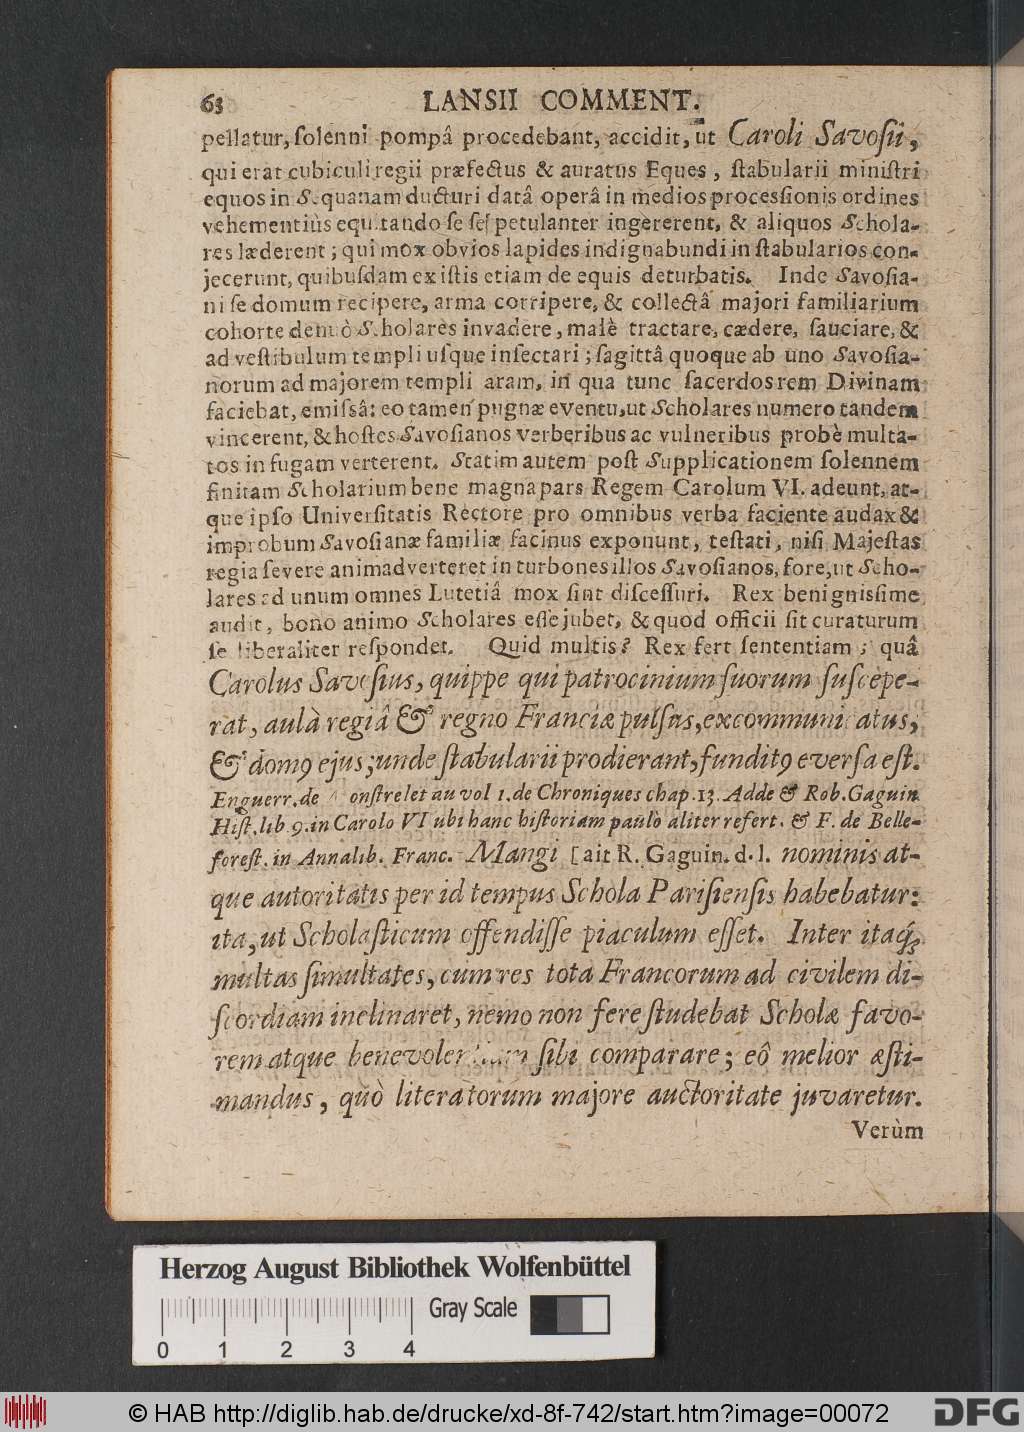 63 LANSII COMMENT.
pellatur, ſolenni pompâ procedebant, accidit, ut Caroli Savoſii,
qui erat cubiculi regii præfectus & auratus Eques, ſtabularii miniſtri
equos in Sequanam ducturi datâ operâ in medios proceſſionis ordines
vehementiùs equitando ſe ſeſ petulanter ingererent, & aliquos Schola-
res læderent; qui mox obvios lapides indignabundi in ſtabularios con-
jecerunt, quibuſdam ex iſtis etiam de equis deturbatis. Inde Savoſia-
ni ſe domum recipere, arma corripere, & collectâ majori familiarium
cohorte denuò Scholares invadere, malè tractare, cædere, ſauciare, &
ad veſtibulum templi uſque inſectari; ſagittâ quoque ab uno Savoſia-
norum ad majorem templi aram, in qua tunc ſacerdos rem Divinam
faciebat, emiſsâ: eo tamen pugnæ eventu, ut Scholares numero tandem
vincerent, & hoſtes Savoſianos verberibus ac vulneribus probè multa-
tos in fugam verterent. Statim autem poſt Supplicationem ſolennem
finitam Scholarium bene magna pars Regem Carolum VI. adeunt, at-
que ipſo Univerſitatis Rectore pro omnibus verba faciente audax &
improbum Savoſianæ familiæ facinus exponunt, teſtati, niſi Majeſtas
regia ſevere animadverteret in turbones illos Savoſianos, fore, ut Scho-
lares ad unum omnes Lutetiâ mox ſint diſceſſuri. Rex benigniſſime
audit, bono animo Scholares eſſe jubet, & quod officii ſit curaturum
ſe liberaliter reſpondet. Quid multis? Rex fert ſententiam; quâ
Carolus Savoſius, quippe qui patrocinium ſuorum ſuſcepe-
rat, aulà regiâ & regno Franciæ pulſus, excommunicatus,
& domꝰ ejus; unde ſtabularii prodierant, funditꝰ everſa eſt.
Enguerr. de onſtrelet au vol 1. de Chroniques chap. 13. Adde & Rob. Gaguin.
Hiſt. lib 9. in Carolo VI ubi hanc hiſtoriam paulo aliter refert. & F. de Belle-
foreſt. in Annalib. Franc. Mangi [ait R. Gaguin. d. l. nominis at-
que autoritatis per id tempus Schola Pariſienſis habebatur:
ita, ut Scholaſticum offendiſſe piaculum eſſet. Inter itaq;
multas ſimultates, cum res tota Francorum ad civilem di-
ſcordiam inclinaret, nemo non fere ſtudebat Scholæ favo-
rem atque benevolentiam ſibi comparare; eô melior æſti-
mandus, quò literatorum majore auctoritate juvaretur.
Verùm
Herzog August Bibliothek Wolfenbüttel
Gray Scale
0 1 2 3 4
© HAB http://diglib.hab.de/drucke/xd-8f-742/start.htm?image=00072
DFG